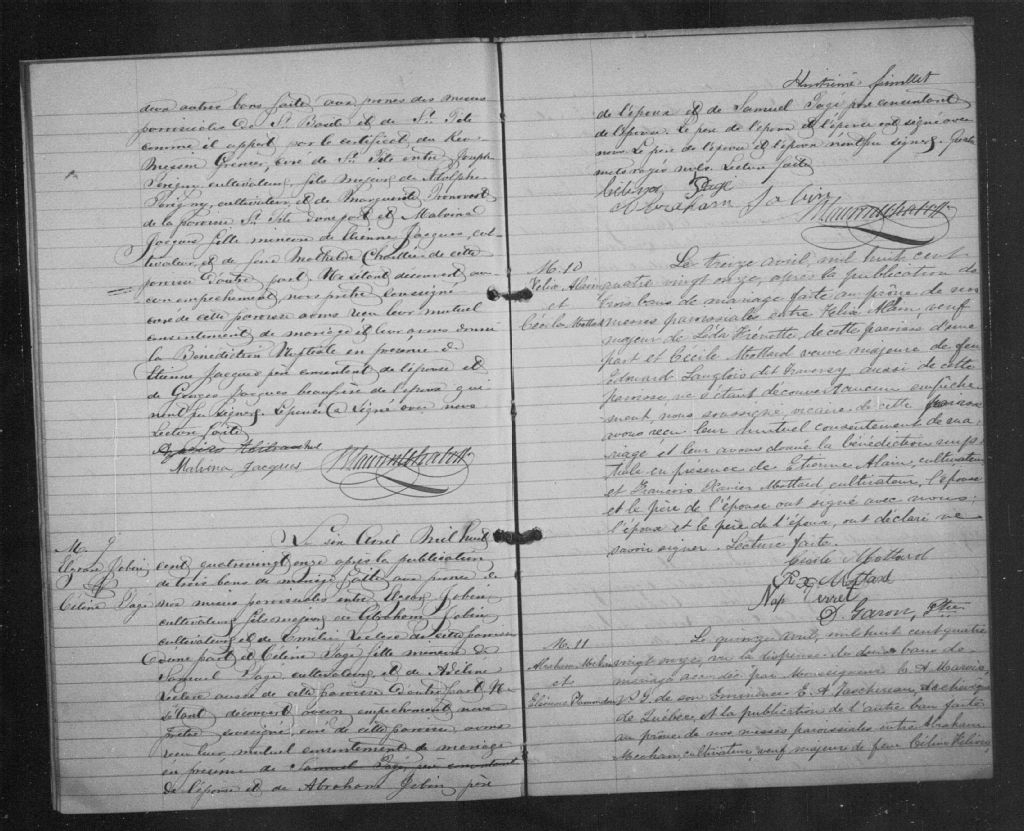 deux autres bans faite aux prones des messes
paroissiales de St Basile et de Ste Tite
comme il appert par le certificat du Rev
Messire Grenier, curé de St Tite entre Joseph
Perigny cultivateur, fils majeur de Adolphe
Perigny, cultivateur, et de Marguerite Pronovost
de la paroisse St Tite d'une part et Malvina
Jacques fille mineure de Etienne Jacques, cul-
tivateur, et de feue Methilde de cette
paroisse d'autre part. Ne s'étant découvert au-
cun empechement, nous prêtre soussigné
curé de cette paroisse avons reçu leur mutuel
consentement de mariage et leur avons donné
la Benediction Nuptiale en présence de
Etienne Jacques père consentant de l'épouse et
de Georges Jacques beaufrère de l'epoux qui
n'ont pu signer. L'epouse a signé avec nous
Lecture faite
Malvina Jacques
M. 9
Le six Avril Mil huit
Ugene Jobin
cent quatrevingt onze après la publication
&
de trois bans de mariage faite aux prone de
Céline Pagé
nos messes paroissiales entre Jobin,
cultivateur fils majeur de Abraham Jobin
cultivateur et de Emélie Leclerc de cette paroisse
d'une part et Céline Pagé fille mineure de
Samuel Pagé cultivateur, et de Adéline
Leclerc aussi de cette paroisse d'autre part. Ne
s'étant découvert aucun empechement nous
Prêtre soussigné, curé de cette paroisse avons
reçu leur mutuel consentement de mariage
en présence de Samuel Pagé, père consentant
de l'épouse et de Abraham Jobin père
de l'époux et de Samuel Pagé père consentant
de l'épouse. Le père de l'époux et l'épouse ont signé avec
nous. Le père de l'épouse et l'époux n'ont pu signer. Quatre
mots rayés nuls. Lecture faite
Celina Pagé
Abraham Jobin
M. 10
Le treize avril, mil huit cent
Felix Alain
quatre vingt onze, après la publication de
et
trois bans de mariage faite au prône de nos
Cécile Mottard
messes paroissiales entre Felix Alain, veuf
majeur de Léda Frénette, de cette paroisse d'une
part et Cécile Mottard veuve majeure de feu
Edouard Langlois dit Traversy aussi de cette
paroisse, ne s'étant découvert aucun empêche-
ment, nous soussigné, vicaire de cette paroisse
avons reçu leur mutuel consentement de ma-
riage et leur avons donné la bénédiction nup-
tiale en présence de Etienne Alain, cultivateur
et François Xavier Mottard cultivateur, l'épouse
et le père de l'épouse ont signé avec nous;
l'époux et le père de l'époux, ont déclaré ne
savoir signer. Lecture faite.
Cécile Mottard
F. X. Motard
Nap Verret
D. Garon, Ptre
M. 11
Le quinze avril, mil huit cent quatre
Abraham Meehan
vingt onze, vu la dispense de deux bans de
et
mariage accordée par Monseigneur C. A. Marois,
V. G. de son Eminence E. A. Taschereau, Archevêque
de Québec, et la publication de l'autre ban faite
au prône de nos messes paroissiales entre Abraham
Meehan, cultivateur, veuf majeure de feue Céline